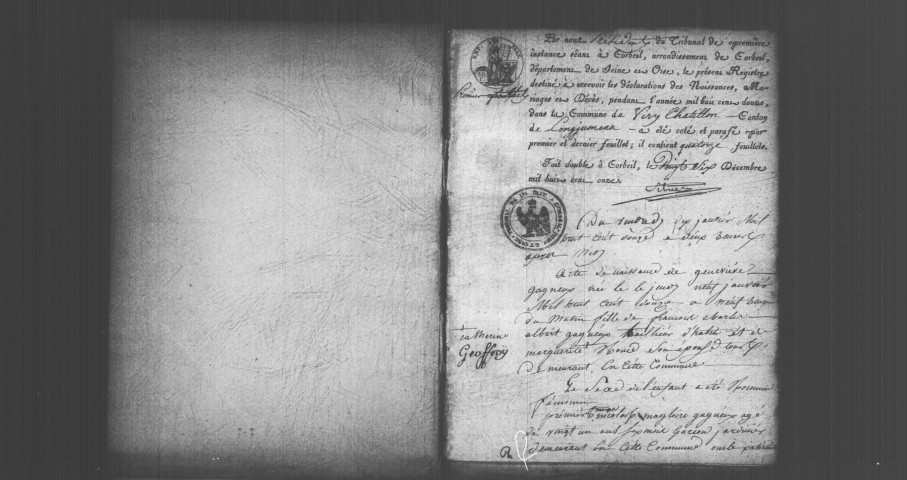 Par nous Président du Tribunal de première
instance séant à Corbeil, arrondissement de Corbeil,
département de Seine et Oise, le présent Registre
destiné à recevoir les déclarations des Naissances, Ma-
riages et Décès, pendant l'année mil huit cent douze,
dans la Commune de Viry Chatillon Canton
de Longjumeau a été coté et parafé par
premier et dernier feuillet; il contient quatorze feuillets.
Fait double à Corbeil, le Vingt Six Décembre
mil huit cent onze.
Premier feuillet
Du vendredi dix janvier Mil
huit cent douze a deux heures
apres midi
Acte de naissance de genevieve
gagneux née le jeudi neuf janvier
Mil huit cent douze a neuf heures
du matin fille de francois charles
albert gagneux et de
marguerite son épouse tous
demeurant En Cette Commune
Le Sexe de l'enfant a été reconnu
féminin
premier temoin nicolas magloire gagneux agé
de vingt un ans six mois garçon jardinier
demeurant En Cette Commune oncle paternel
catherine
Geoffroÿ